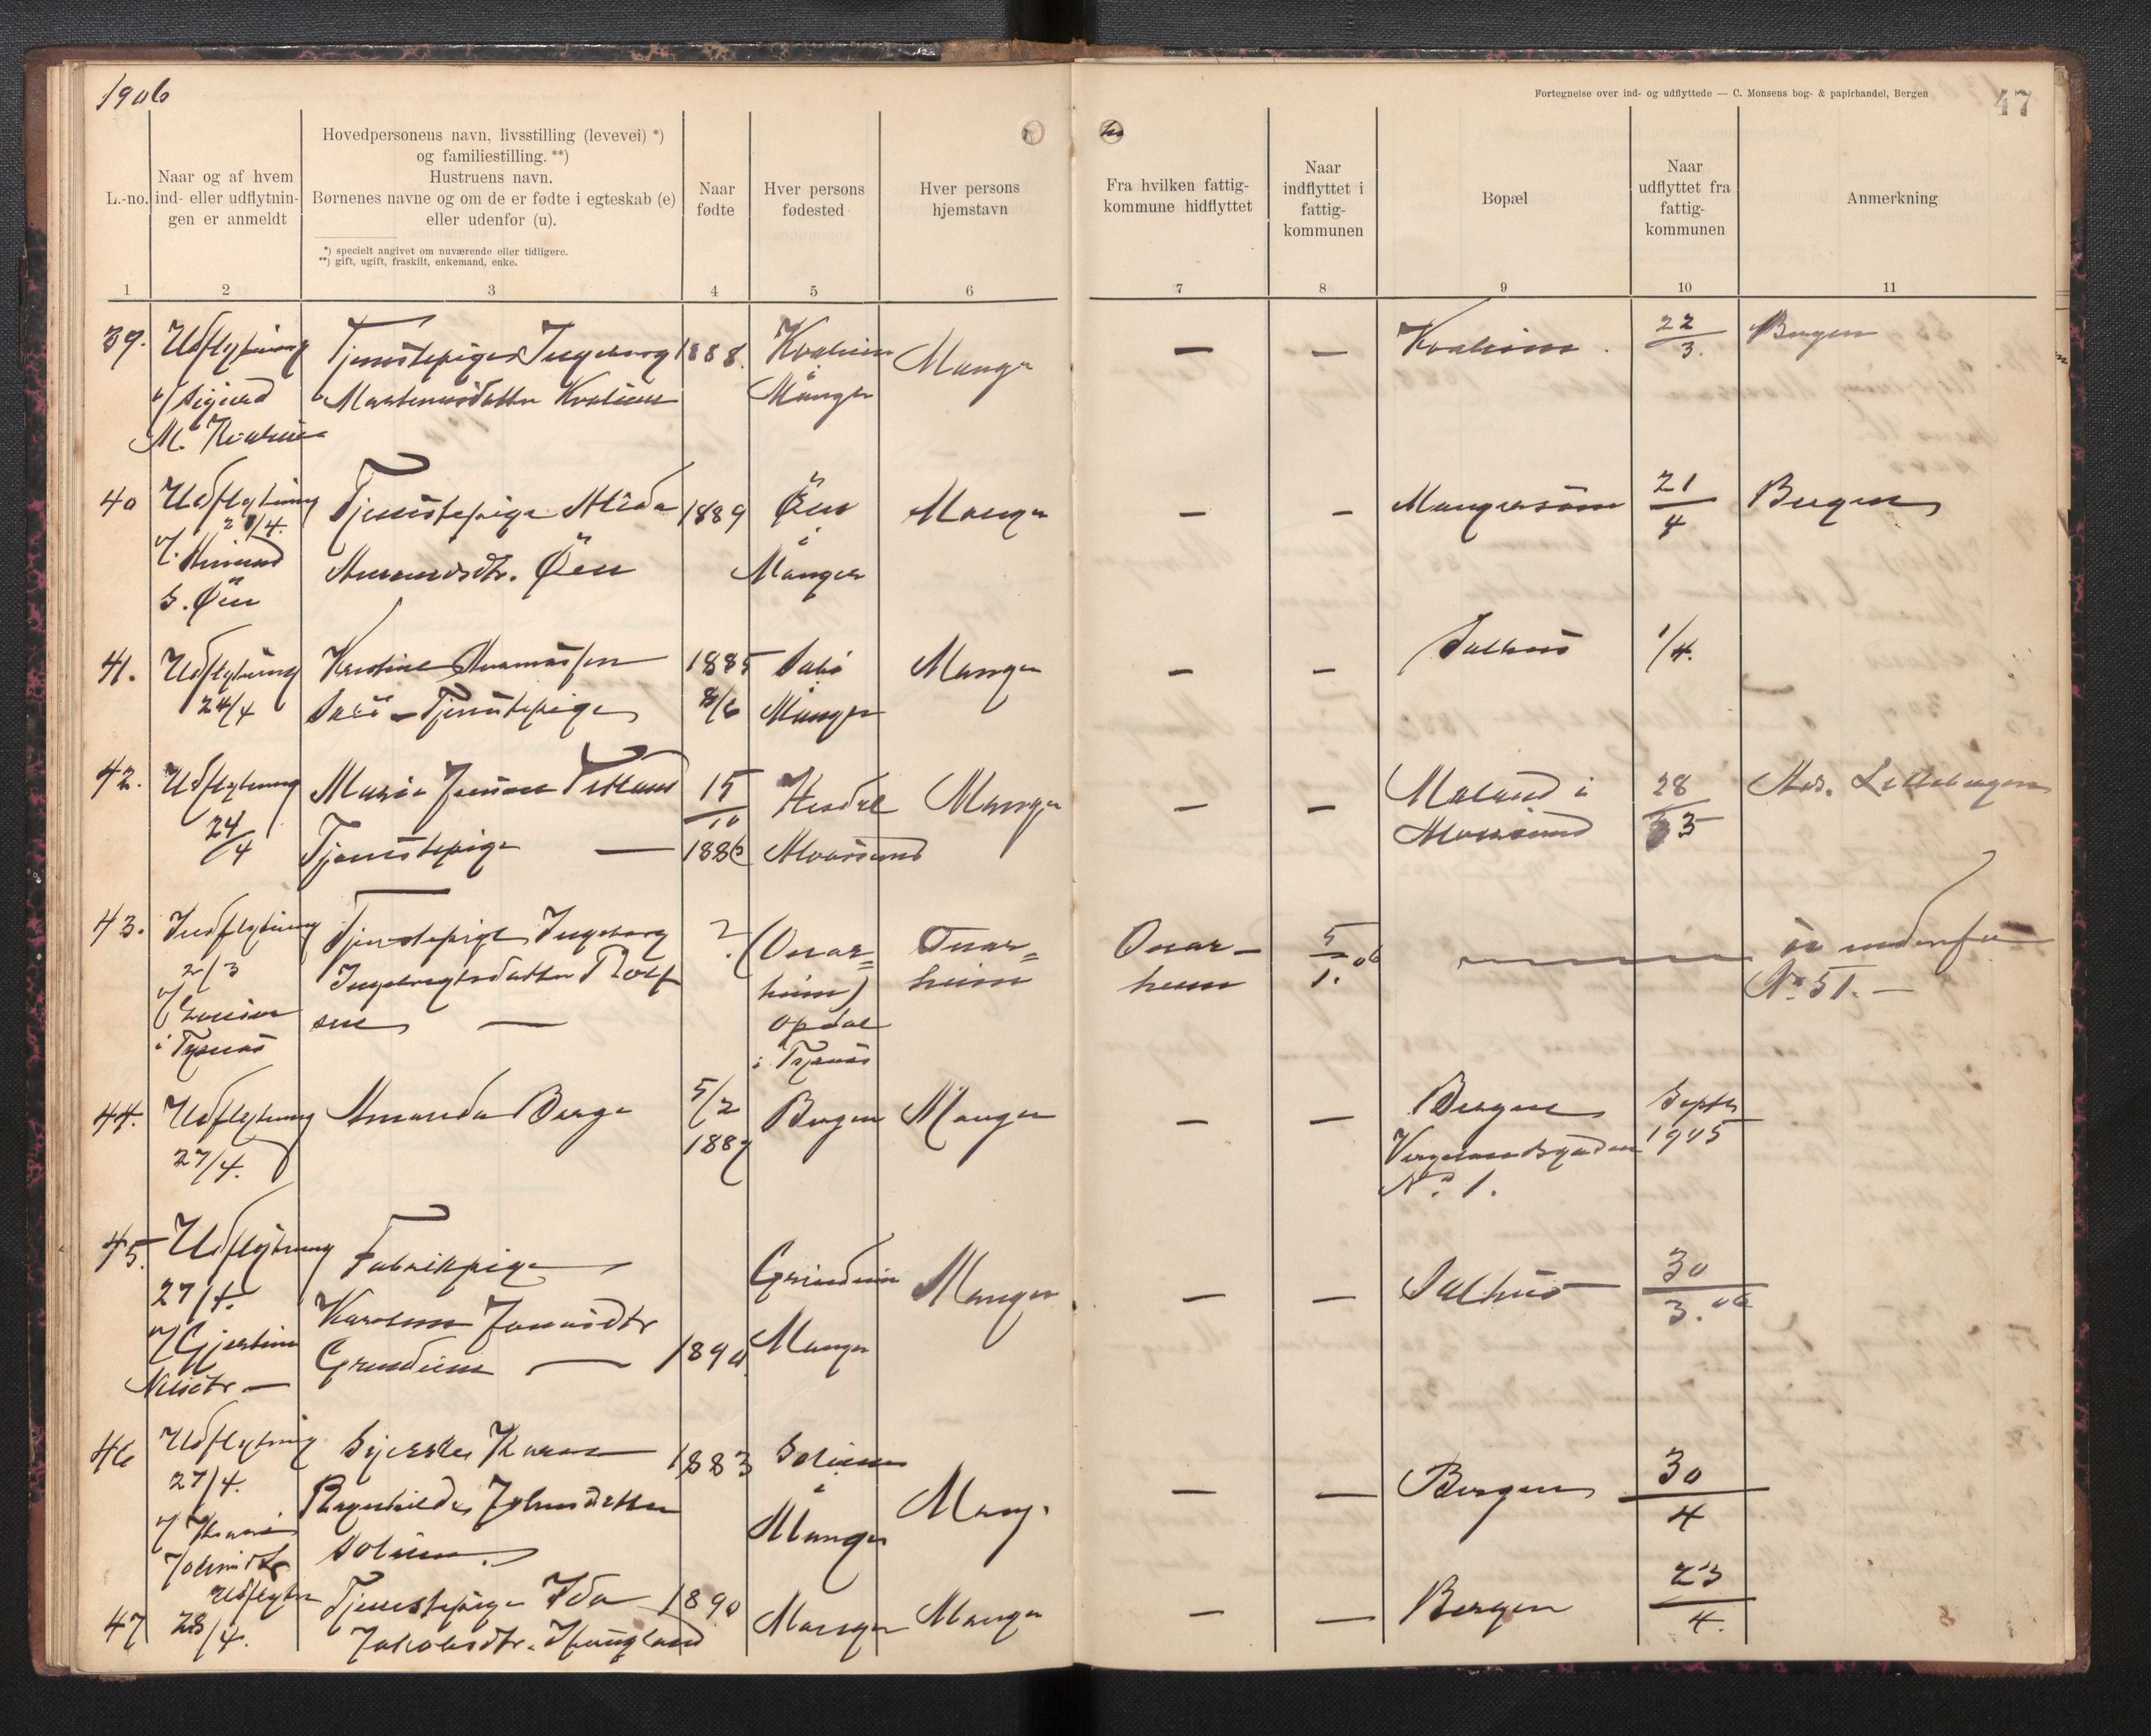 1906
Fortegnelse over ind- og udflyttede — C. Monsens bog- & papirhandel, Bergen
47
L.-no.
Naar og af hvem
ind- eller udflytnin-
gen er anmeldt
Hovedpersonens navn, livsstilling (levevei) *)
og familiestilling. **)
Hustruens navn.
Børnenes navne og om de er fødte i egteskab (e)
eller udenfor (u).
*) specielt angivet om nuværende eller tidligere.
**) gift, ugift, fraskilt, enkemand, enke.
Naar
fødte
Hver persons
fødested
Hver persons
hjemstavn
Fra hvilken fattig-
kommune hidflyttet
Naar
indflyttet i
fattig-
kommunen
Bopæl
Naar
udflyttet fra
fattig-
kommunen
Anmerkning
1 2 3 4 5 6 7 8 9 10 11
39. Udflytning Tjenestepige Ingeborg 1888. Kvalheim Manger — — Kvalheim. 22/3. Bergen
v/ Sigurd Martinusdatter Kvalheim i Manger
M. Kvalheim
40 Udflytning Tjenestepige Alida 1889 Øen Manger — — Mangersnes 21/4 Bergen
21/4. i
v/ Amund Amundsdtr. Øen Manger
S. Øen
41. Udflytning Kristine Rasmussen 1885 Sæbø Manger — — Salhus 1/4.
24/4 Sæbø — Tjenestepige 8/6 Manger
42. Udflytning Maria Jensen 15/10 Hesdal Manger — — i 28/3
24/4 Tjenestepige — 1886 Alversund Alversund
43. Indflytning Tjenestepige Ingeborg ? (Onar= Onar= Onar— 5/1. 06
2/3 Ingebrigtsdatter Rolf heim) heim heim No 51. —
sen — Opdal
i Tysnæs i Tysnæs
44. Udflytning Amanda Berge 5/2 Bergen Manger — — Bergen Septr
27/4. 1889 1905
No 1.
45. Udflytning Fabrikpige Grindheim Manger — — Salhus 30/3. 06
27/4. Jonasdtr
v/ Gjertine Grindheim — 1890 Manger
Nilsdtr —
46 Udflytning Syerske Karen 1883 Solheim Mang. — — Bergen 30/4
27/4. Ragnhilda Johnsdatter i
Johnsdtr Solheim. Manger
47 Udflytn Tjenestepige Ida 1890 Manger Manger — — Bergen 23/4.
28/4. Jakobsdtr. Haugland